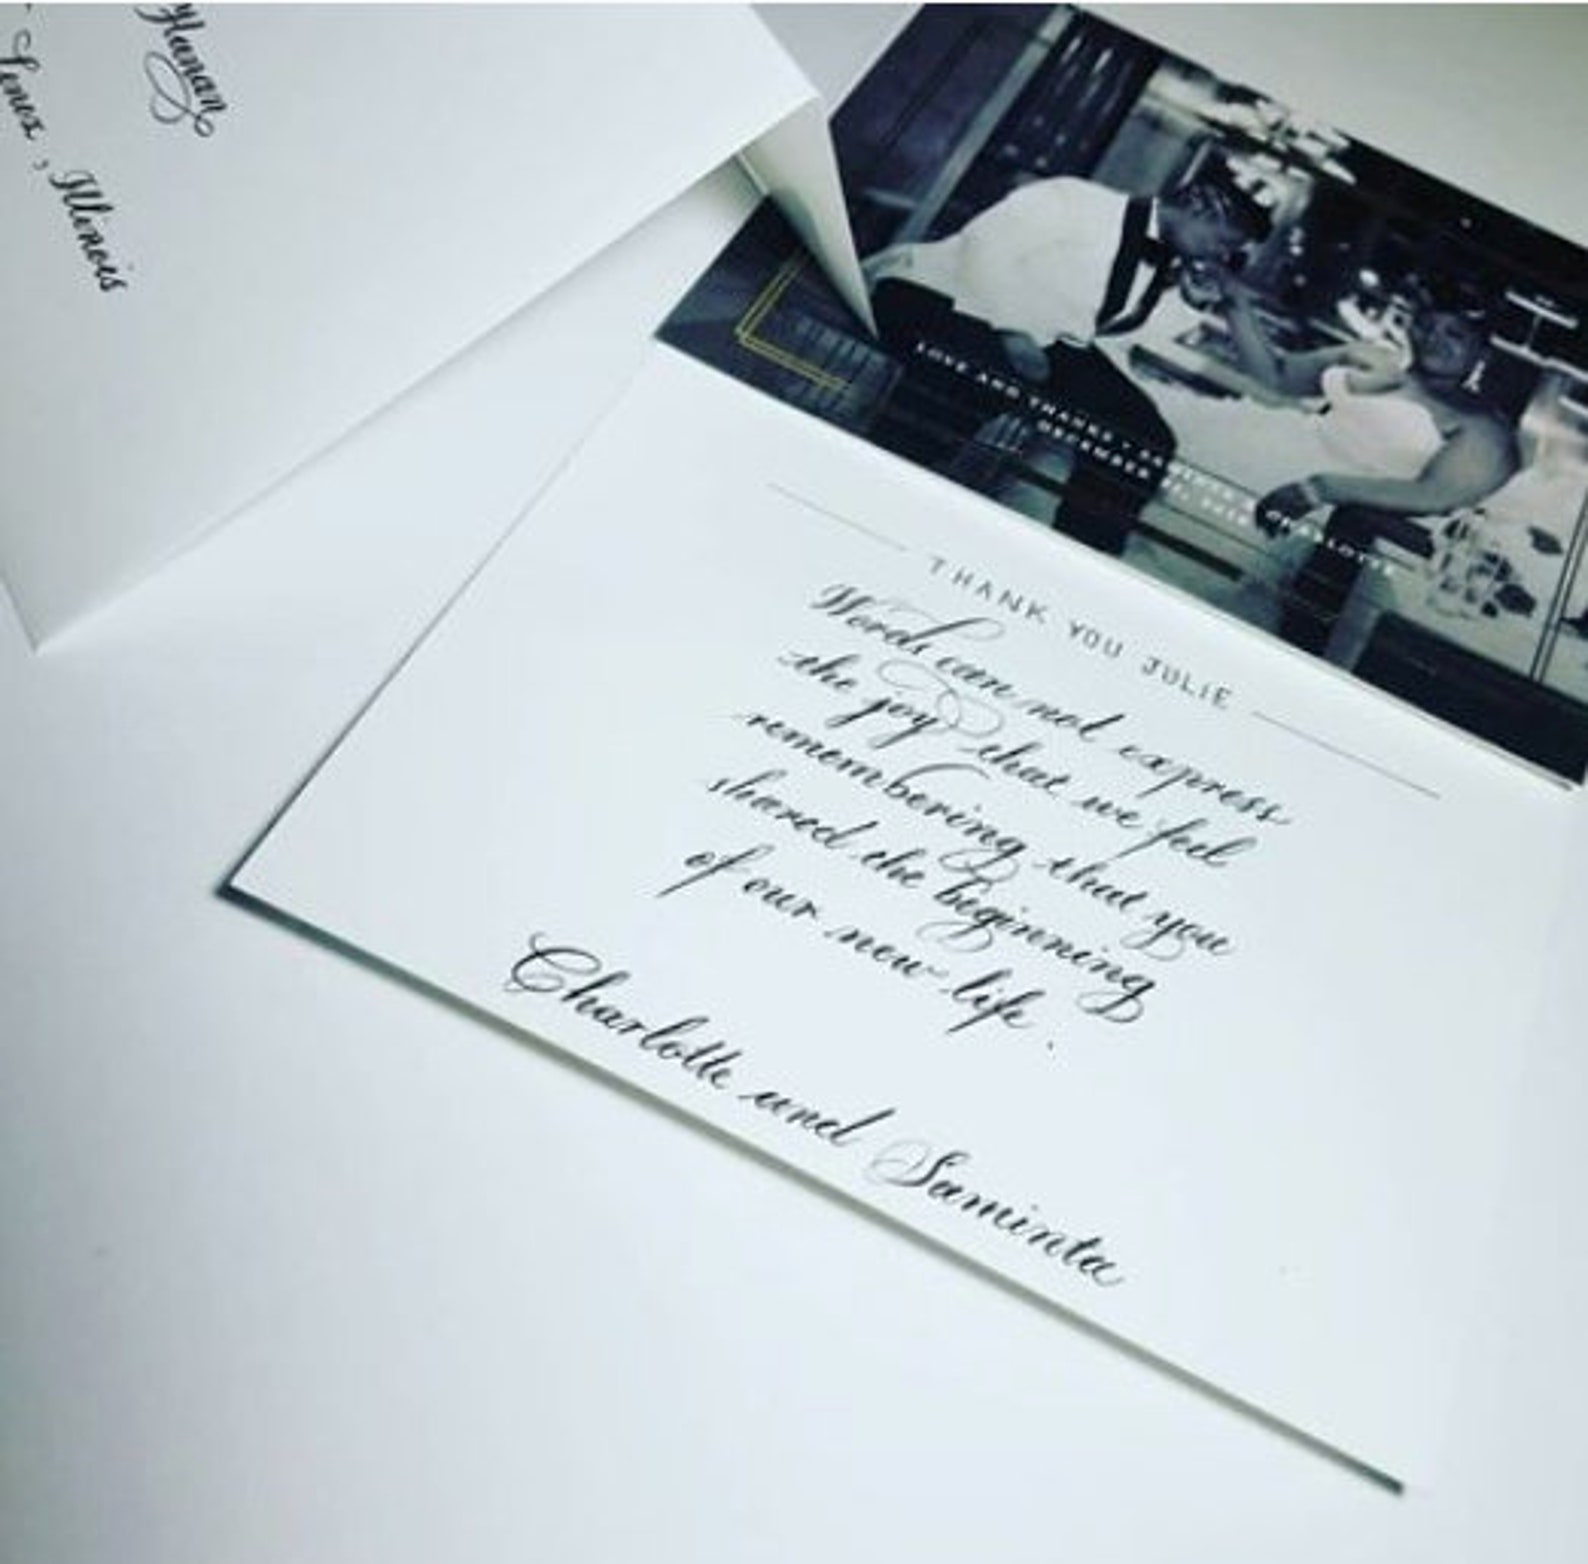 Haman
Lenox, Illinois
LOVE AND THANKS • SAMINTA & CHARLOTTE
DECEMBER
THANK YOU JULIE
Words can not express
the joy that we feel
remembering that you
shared the beginning
of our new life.
Charlotte and Saminta